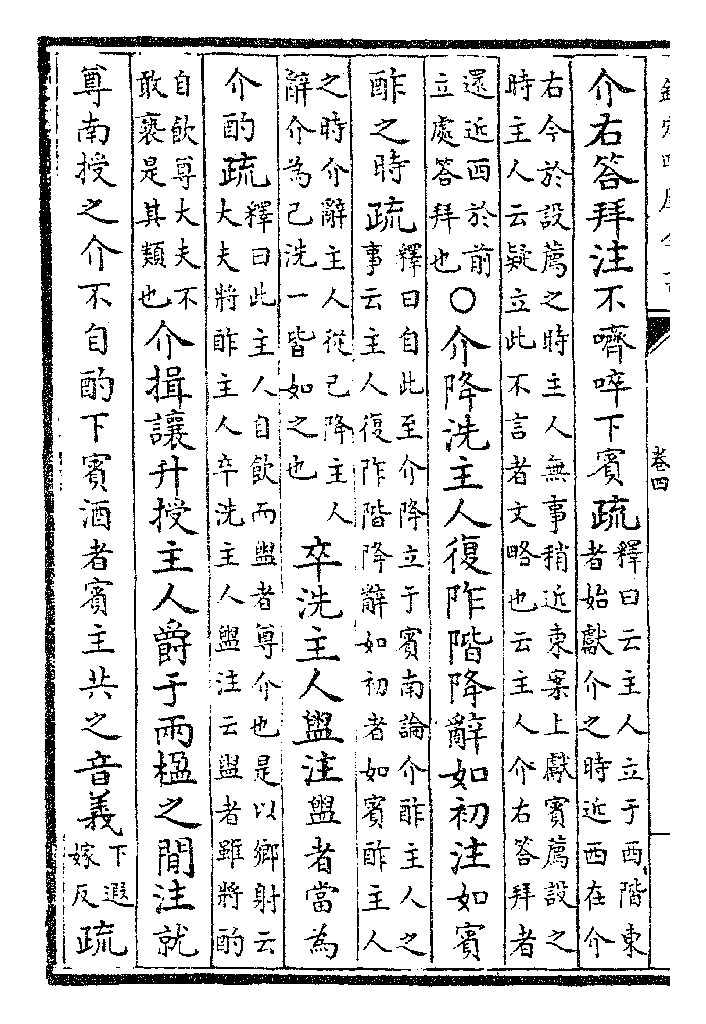 卷四
介右答拜注不嚌啐下賓疏釋曰云主人立于西階東
者始獻介之時近西在介
右今於設薦之時主人無事稍近東案上獻賓薦設之
時主人云疑立此不言者文略也云主人介右答拜者
還近西於前
立處答拜也○介降洗主人復阼階降辭如初注如賓
酢之時疏釋曰自此至介降立于賓南論介酢主人之
事云主人復阼階降辭如初者如賓酢主人
之時介辭主人從己降主人
辭介為己洗一皆如之也 卒洗主人盥注盥者當為
介酌疏釋曰此主人自飲而盥者尊介也是以鄉射云
大夫將酢主人卒洗主人盥注云盥者雖將酌
自飲尊大夫不
敢褻是其類也 介揖讓升授主人爵于兩楹之間注就
尊南授之介不自酌下賓酒者賓主共之音義下遐
嫁反疏